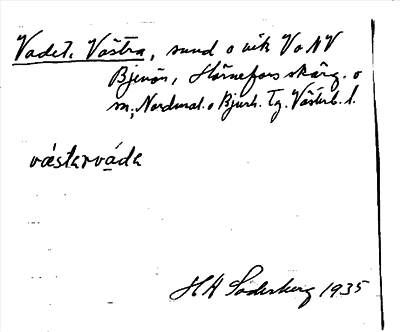 Vadet, Västra, sund o vik V o NV
Bjurön, Hörnefors skärg. o
sn, Nordmal. o Bjurh. Tg. Västerb. l.
västarváda
H A Söderberg 1935